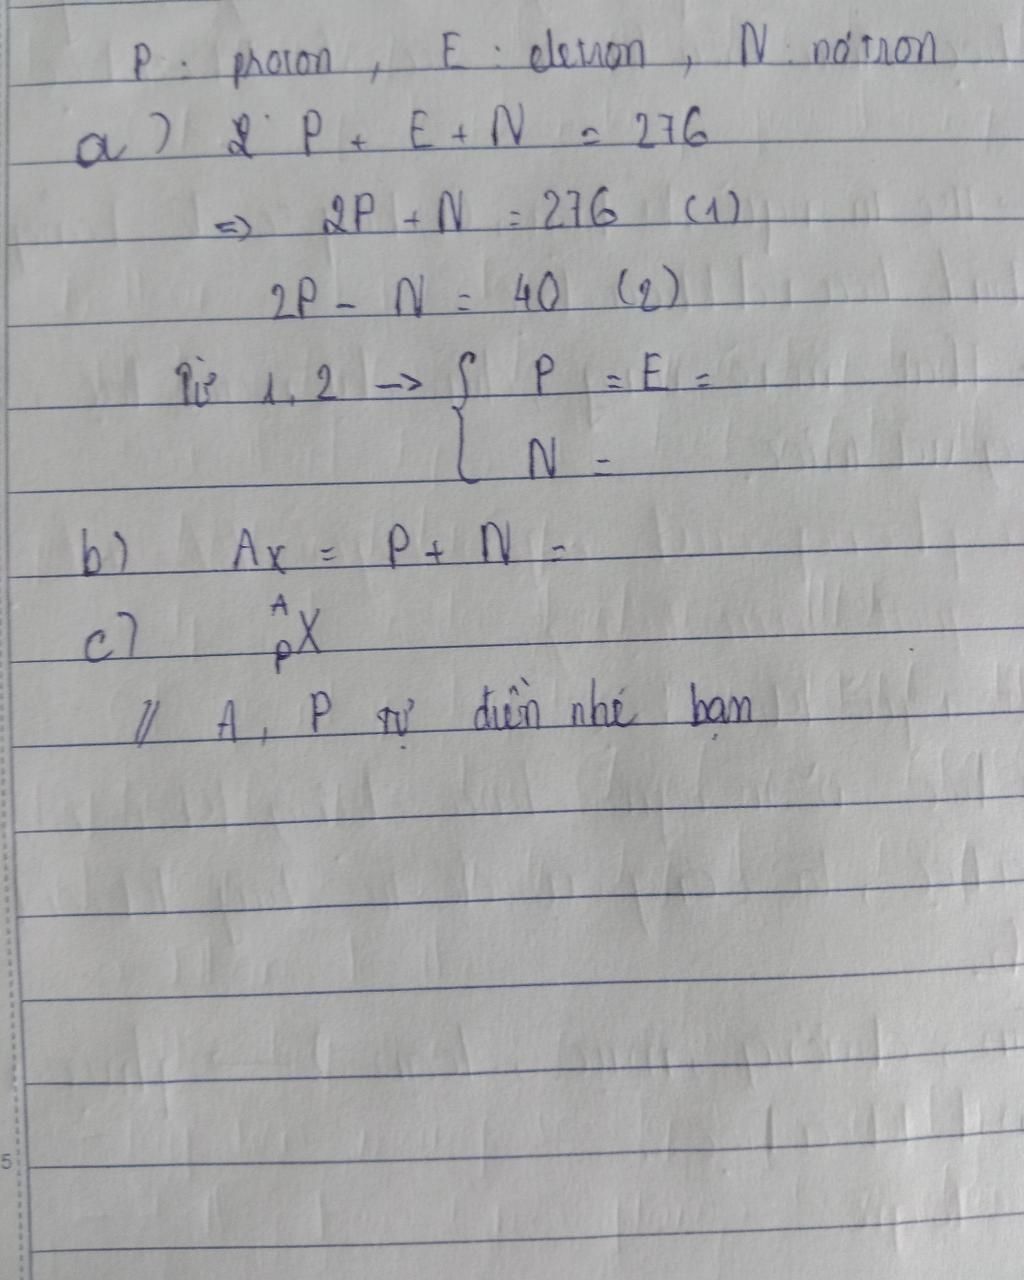 P : proton, E : eletron, N : nơtron
a) 2 P + E + N = 276
=> 2P + N = 276 (1)
2P - N = 40 (2)
Từ 1, 2 -> { P = E =
N =
b) Ax = P + N =
c) A P X
// A, P tự điền nhé bạn
5